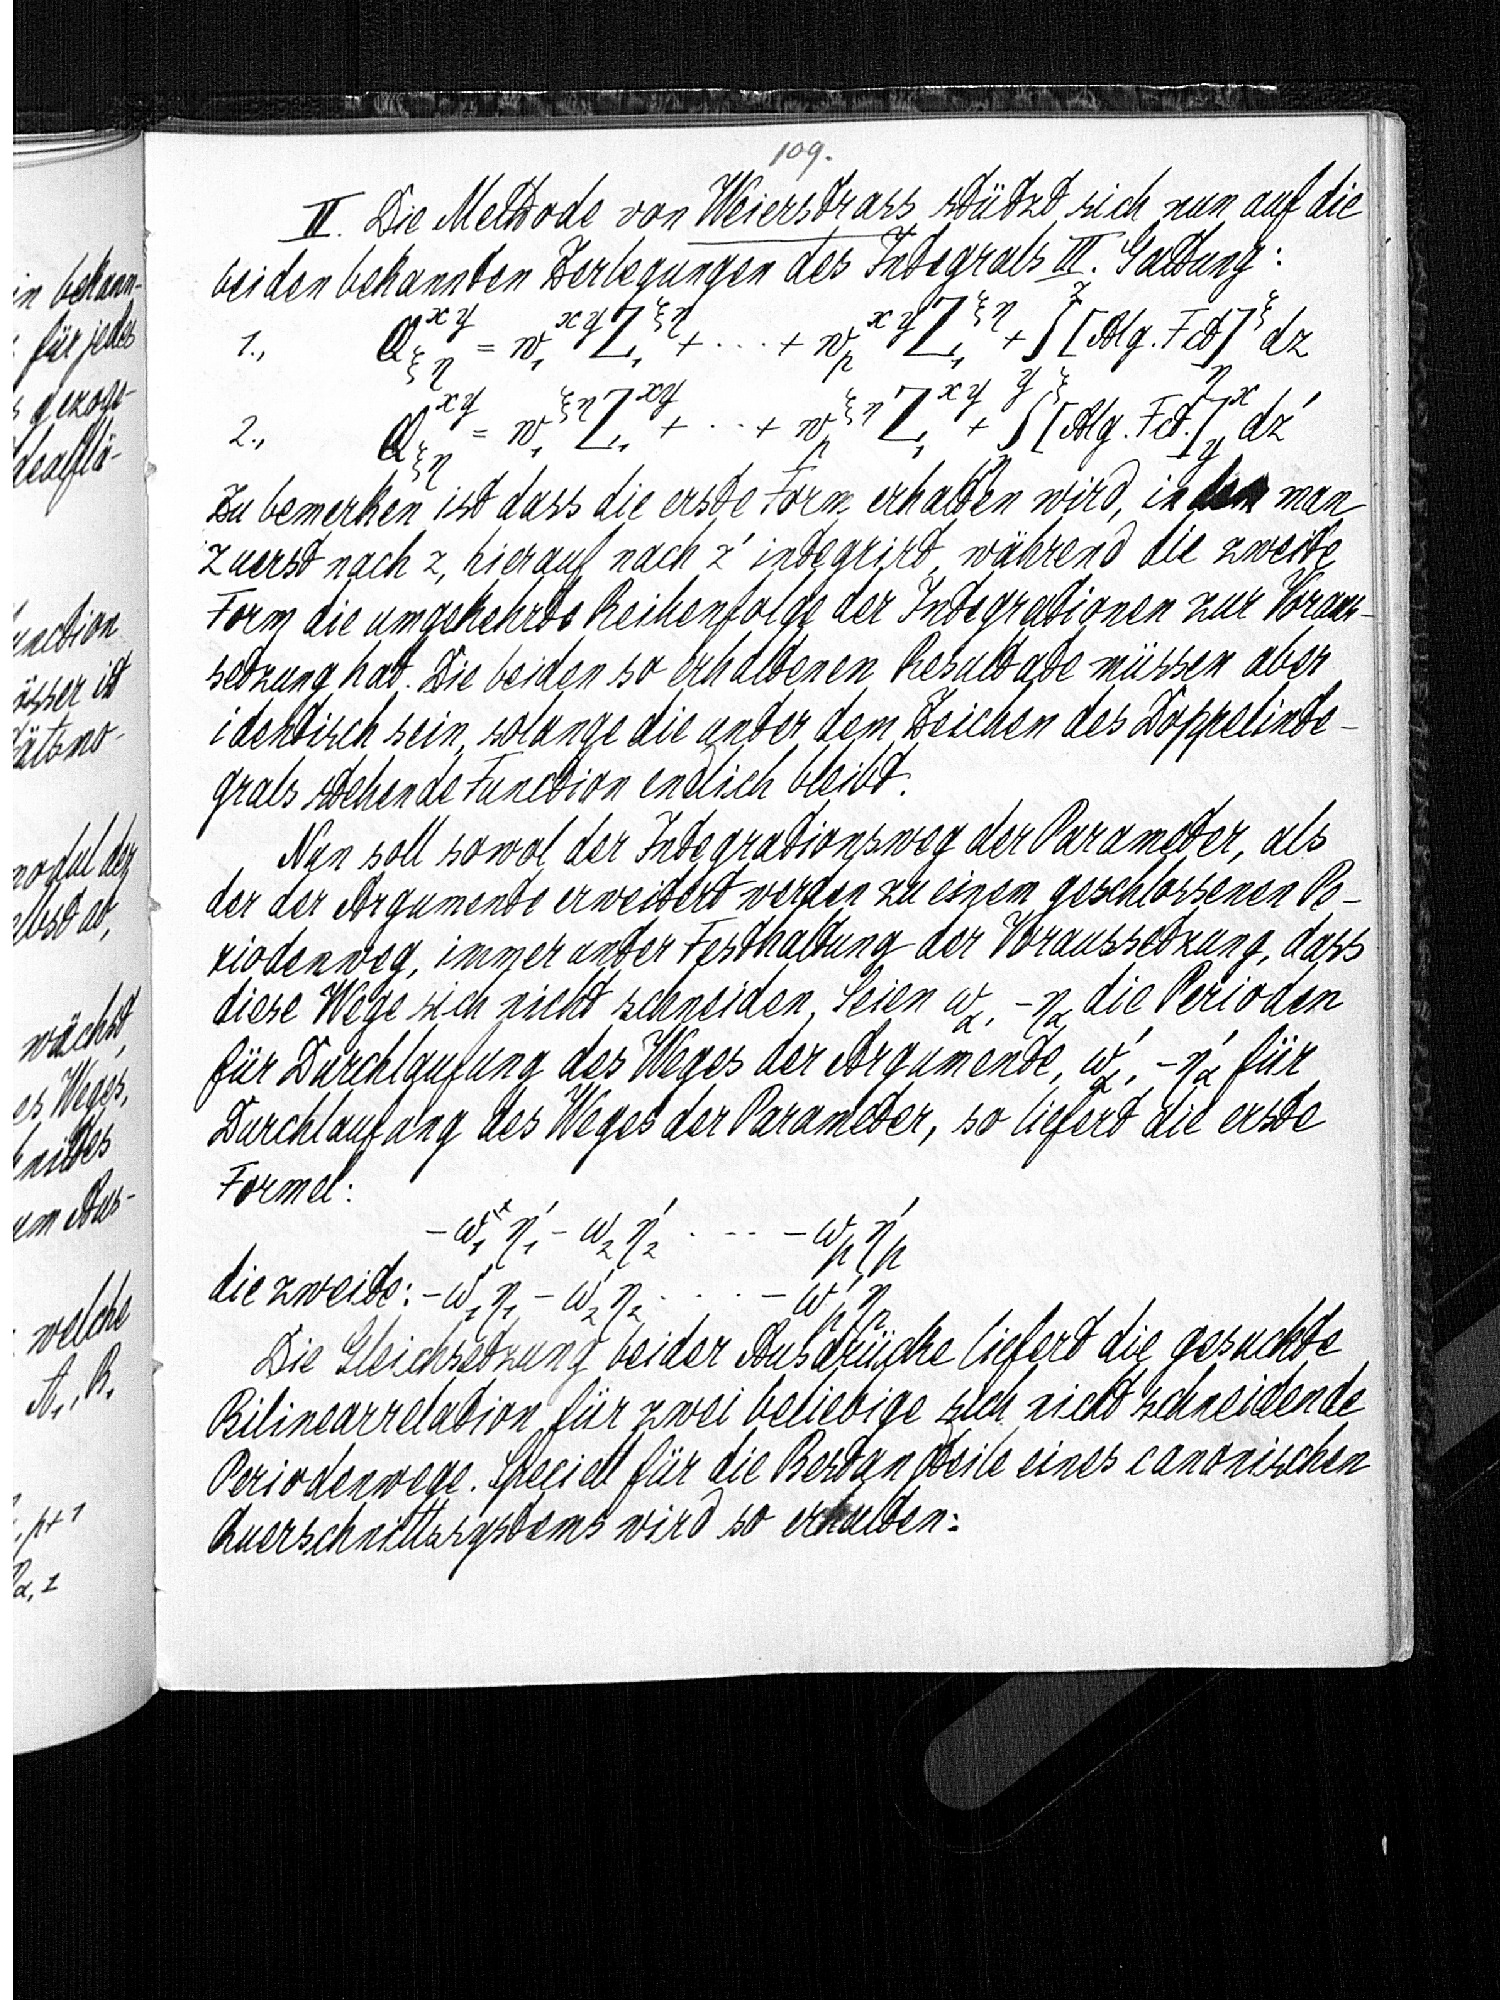 in bekann-
für jedes
gezoge-
Idealflä-
unction
össer ist
tätsno-
modul der
elbst ab,
wächst,
es Weges,
hnittes
em Aus-
welche
A₁, B₁
, p+1
α, 1
109.
II. Die Methode von Weierstrass stützt sich nun auf die
beiden bekannten Zerlegungen des Integrals III. Gattung:
1., Q_{ξη}^{xy} = w₁^{xy} Z₁^{ξη} + . . . . + w_p^{xy} Z₁^{ξη} + ∫_y^x [Alg. Fct]_η^ξ dz
2., Q_{ξη}^{xy} = w₁^{ξη} Z₁^{xy} + . . . + w_p^{ξη} Z₁^{xy} + ∫_η^ξ [Alg. Fct.]_y^x dz'
Zu bemerken ist dass die erste Form erhalten wird, indem man
zuerst nach z, hierauf nach z' integrirt, während die zweite
Form die umgekehrte Reihenfolge der Integrationen zur Voraus-
setzung hat. Die beiden so erhaltenen Resultate müssen aber
identisch sein, solange die unter dem Zeichen des Doppelinte-
grals stehende Function endlich bleibt.
Nun soll sowol der Integrationsweg der Parameter, als
der der Argumente erweitert werden zu einem geschlossenen Pe-
riodenweg, immer unter Festhaltung der Voraussetzung, dass
diese Wege sich nicht schneiden. Seien ω_α, -η_α die Perioden
für Durchlaufung des Weges der Argumente, ω'_α, -η'_α für
Durchlaufung des Weges der Parameter, so liefert die erste
Formel:
-ω₁ η'₁ - ω₂ η'₂ . - - - ω_p η'_p
die zweite: -ω'₁ η₁ - ω'₂ η₂ . . . . - ω'_p η_p
Die Gleichsetzung beider Ausdrücke liefert die gesuchte
Bilinearrelation für zwei beliebige sich nicht schneidende
Periodenwege. Speciell für die Bestandteile eines canonischen
Querschnittssystems wird so erhalten: